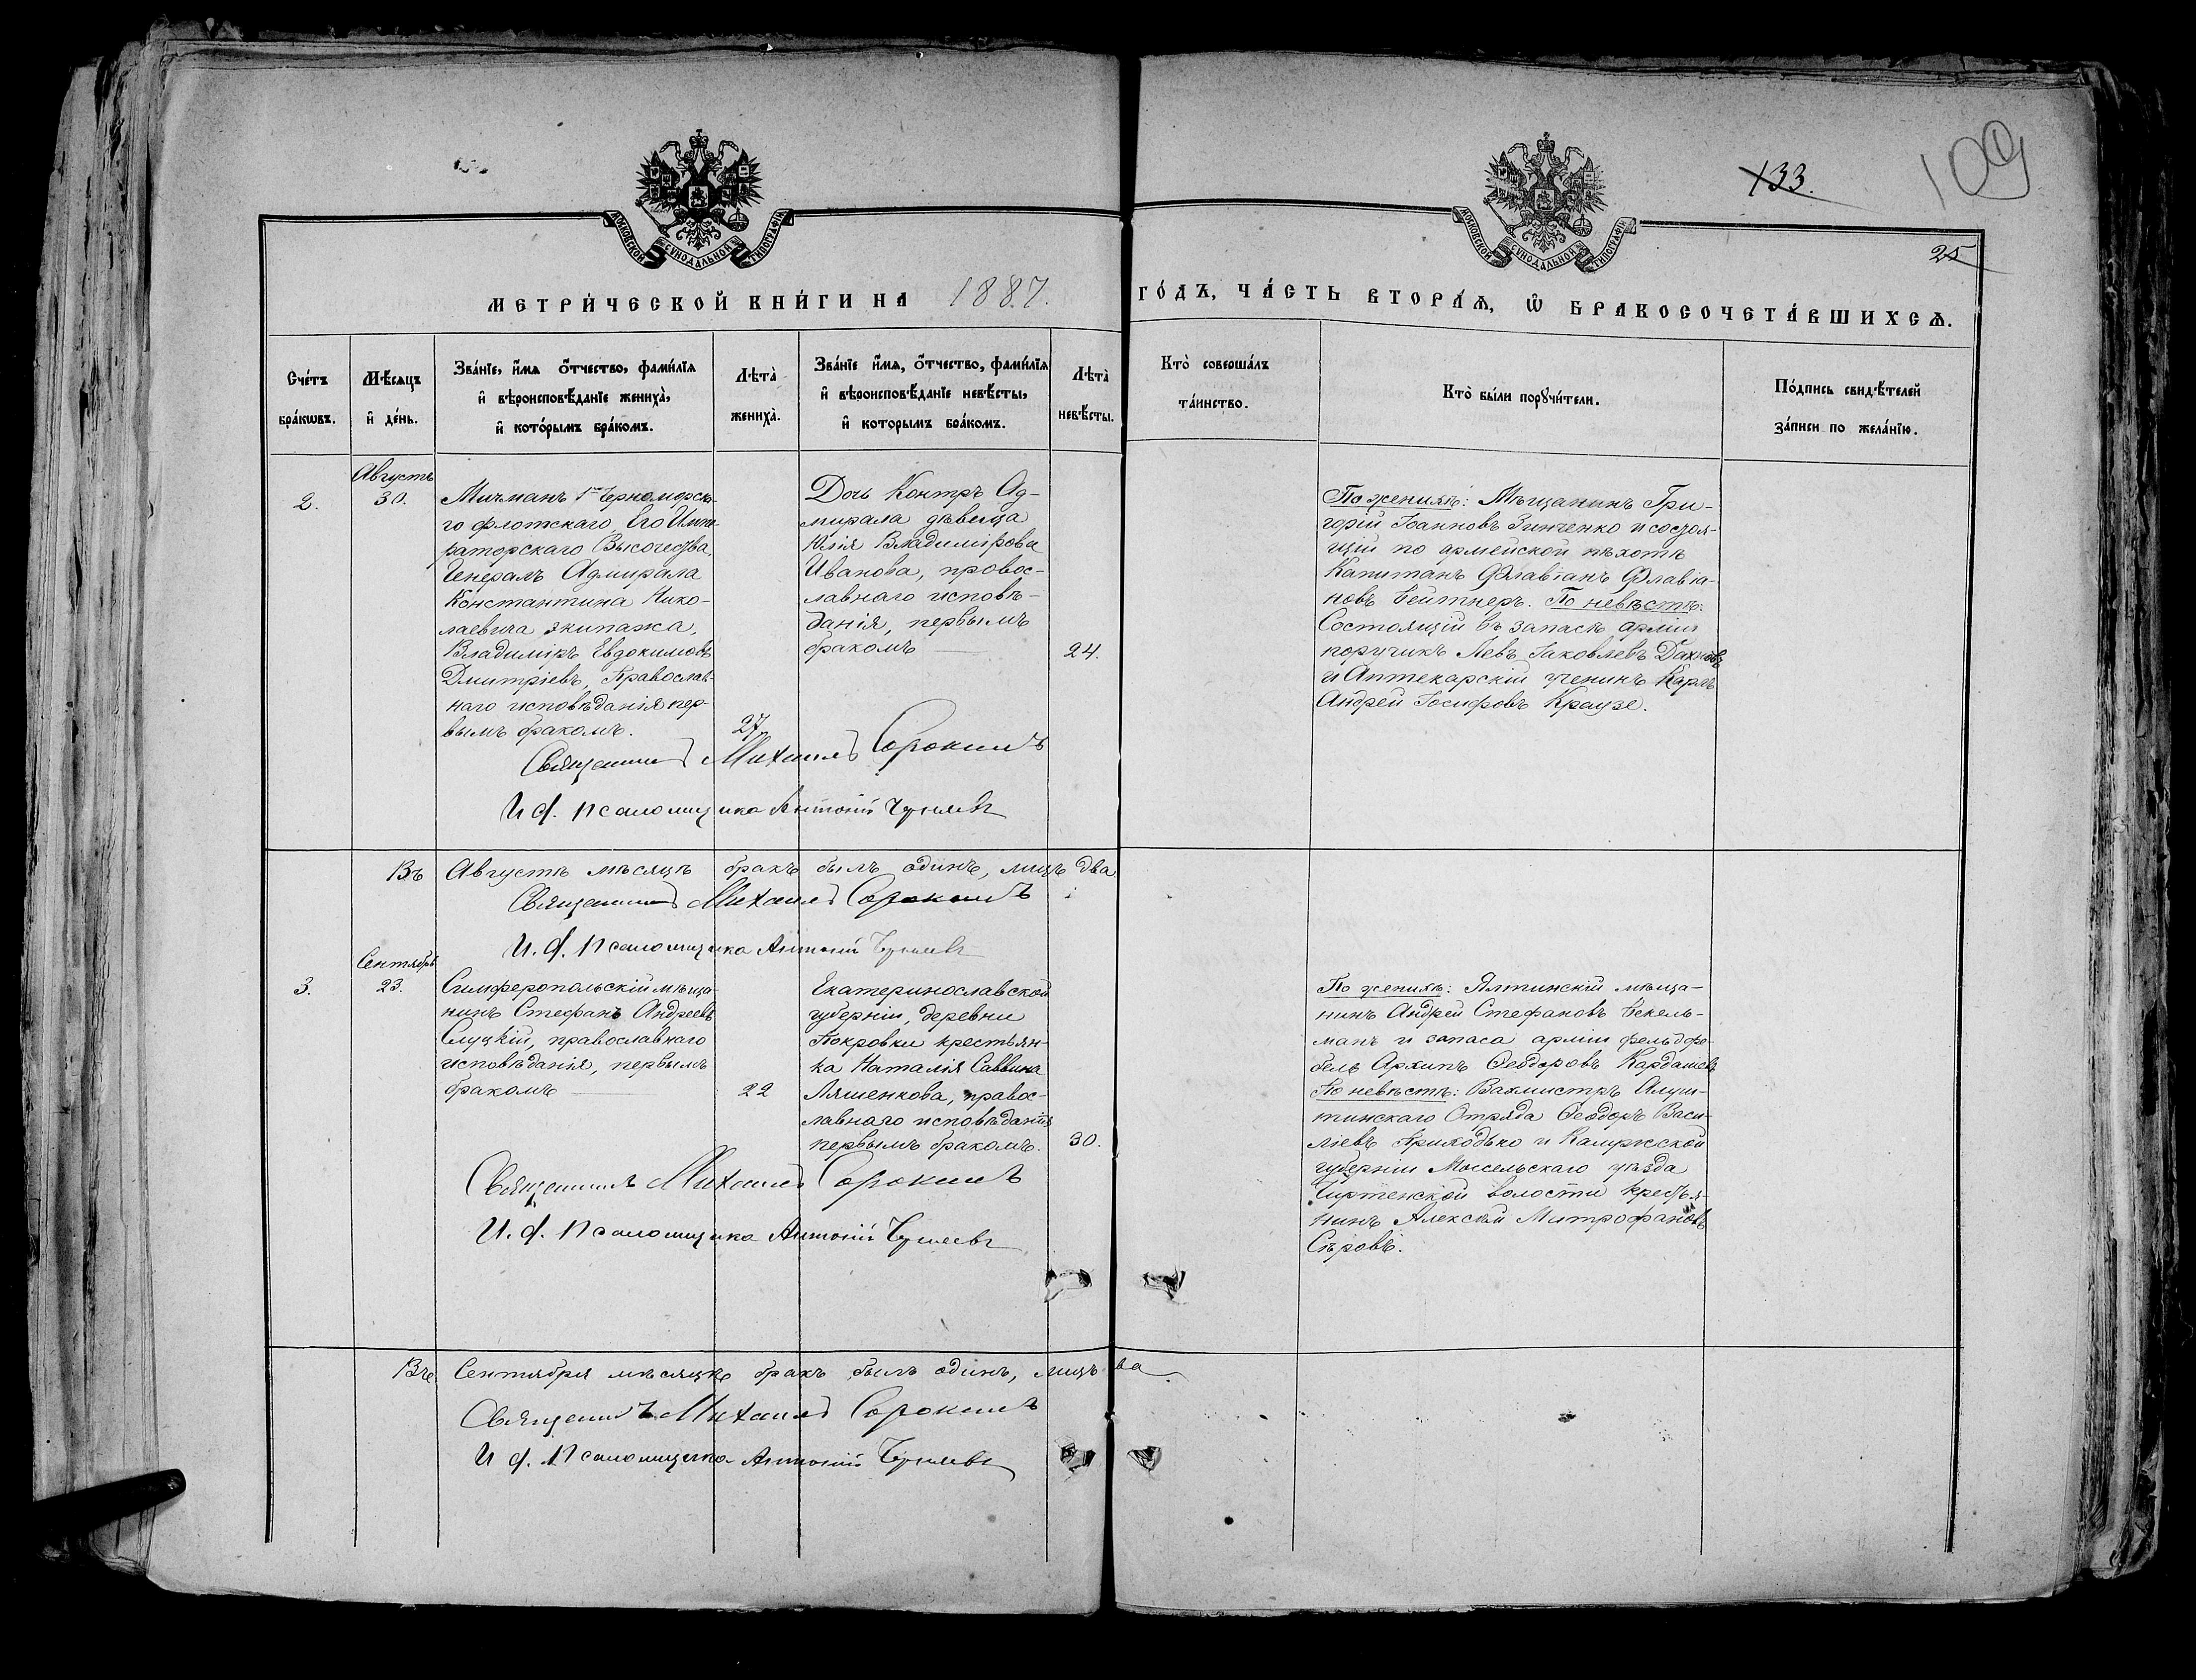 133.
109
25
МОСКОВСКОЙ СѴНОДАЛЬНОЙ ТИПОГРАФІИ
МОСКОВСКОЙ СѴНОДАЛЬНОЙ ТИПОГРАФІИ
МЕТРИ́ЧЕСКОЙ КНИ́ГИ НА 1887. ГО́ДЪ, ЧА́СТЬ ВТОРА́Ѧ, Ѽ БРАКОСОЧЕТА́ВШИХСѦ.
Сче́тъ
бра́кѡвъ.
Мѣ́сяцъ
и҆ де́нь.
Зва́нїе, и҆́мя ѻ҆́тчество, фами́лїя
и҆ вѣроисповѣ́данїе жениха̀,
и҆ кото́рымъ бра́комъ.
Лѣта̀
жениха̀.
Зва́нїе и҆́мя, ѻ҆́тчество, фами́лїя
и҆ вѣроисповѣ́данїе невѣ́сты,
и҆ которымъ бра́комъ.
Лѣта̀
невѣ́сты.
Кто̀ соверша́лъ
та́инство.
Кто̀ бы́ли порꙋчи́тели.
По́дпись свидѣ́телей
за́писи по жела́нїю.
2.
Августъ
30.
Мичманъ 1го Черноморска-
го флотскаго Его Импе-
раторскаго Высочества,
Генералъ Адмирала
Константина Нико-
лаевича экипажа,
Владиміръ Евдокимовъ
Дмитріевъ, Православ-
наго исповѣданія пер-
вымъ бракомъ.
27
Дочь Контръ Ад-
мирала дѣвица
Юлія Владимірова
Иванова, правос-
лавнаго исповѣ-
данія, первымъ
бракомъ
24.
По женихѣ: Мѣщанинъ Гри-
горій Іоанновъ Зинченко и состоя-
щій по армейской пѣхотѣ
Капитанъ Флавіанъ Флавіа-
новъ Бейтнеръ. По невѣстѣ:
Состоящій въ запасѣ арміи
поручикъ Левъ Іаковлевъ
и Аптекарскій ученикъ Карлъ
Андрей Іосифовъ Краузе.
Священникъ Михаилъ Сорокинъ
И ф. псаломщика Антоній
Въ Августѣ мѣсяцѣ бракъ былъ одинъ, лицъ два
Священникъ Михаилъ Сорокинъ
И. ф. псаломщика Антоній
3.
Сентябрь
23.
Симферопольскій мѣща-
нинъ Стефанъ Андреевъ
Слуцкій, православнаго
исповѣданія, первымъ
бракомъ
22
Екатеринославской
губерніи, деревни
Покровки крестьян-
ка Наталія Саввина
Ляшенкова, правос-
лавнаго исповѣданія
первымъ бракомъ.
30.
По женихѣ: Ялтинскій мѣща-
нинъ Андрей Стефановъ Бекель-
манъ и запаса арміи фельдфе-
бель Архипъ Ѳеодоровъ Кардашевъ
По невѣстѣ: Вахмистръ Алуш-
тинскаго Отряда Ѳеодоръ Васи-
ліевъ Приходько и Калужской
губерніи Мосельскаго уѣзда
волости крестья-
нинъ Алексѣй Митрофановъ
Сѣровъ.
Священникъ Михаилъ Сорокинъ
И. ф. псаломщика Антоній
Въ Сентябрѣ мѣсяцѣ бракъ былъ одинъ, лицъ два
Священникъ Михаилъ Сорокинъ
И ф. Псаломщика Антоній